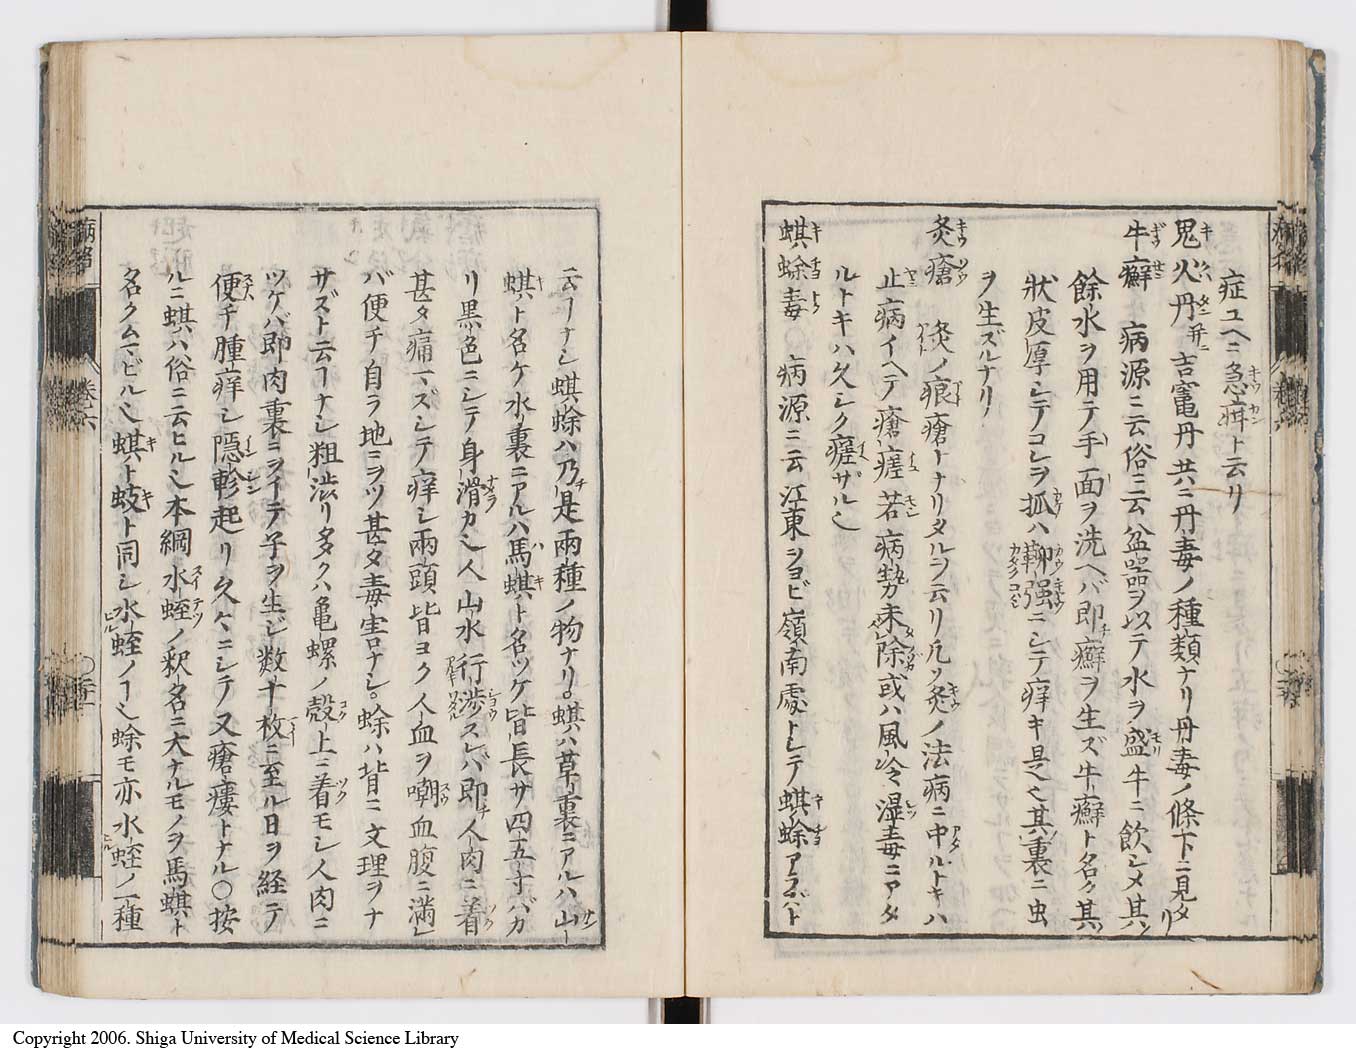 症ユヘニ急疳ト云リ
鬼火丹 并ニ 吉竃丹共ニ丹毒ノ種類ナリ丹毒ノ條下ニ見タリ
牛癬 病源ニ云俗ニ云盆器ヲ以テ水ヲ盛牛ニ飲シメ其ノ
餘水ヲ用テ手面ヲ洗ヘバ即癬ヲ生ズ牛癬ト名ク其
狀皮厚シテコレヲ抓ハ䩕强ニシテ痒キ是也其裏ニ虫
ヲ生ズルナリ
灸瘡 灸ノ痕瘡トナリタルヲ云リ凡ソ灸ノ法病ニ中ルトキハ
止病イヘテ瘡瘥若病勢未除或ハ風冷湿毒ニアタ
ルトキハ久シク瘥ザル也
蜞蜍毒 病源ニ云江東ヲヨビ嶺南處トシテ蜞蜍アラバト
云ヿナシ蜞蜍ハ乃是兩種ノ物ナリ。蜞ハ草裏ニアルハ山
蜞ト名ケ水裏ニアルハ馬蜞ト名ツケ皆長サ四五寸バカ
リ黒色ニシテ身滑カ也人山水行渉スレバ即人肉ニ着
甚タ痛マズシテ痒シ兩頭皆ヨク人血ヲ嘲血腹ニ滿レ
バ便チ自ラ地ニヲツ甚タ毒害ナシ。蜍ハ背ニ文理ヲナ
サズト云ヿナシ粗渋リ多クハ亀螺ノ殼上ニ着モシ人肉ニ
ツケバ即肉裏ニヲイテ子ヲ生ジ数十枚ニ至ル日ヲ経テ
便チ腫痒シ隠軫起リ久ケニシテ又瘡瘻トナル〇按
ルニ蜞ハ俗ニ云ヒル也本綱水蛭ノ釈名ニ大ナルモノヲ馬蜞ト
名クムマビル也蜞ト蚑ト同シ水蛭ノヿ也蜍モ亦水蛭ノ一種
巻六
Copyright 2006. Shiga University of Medical Science Library